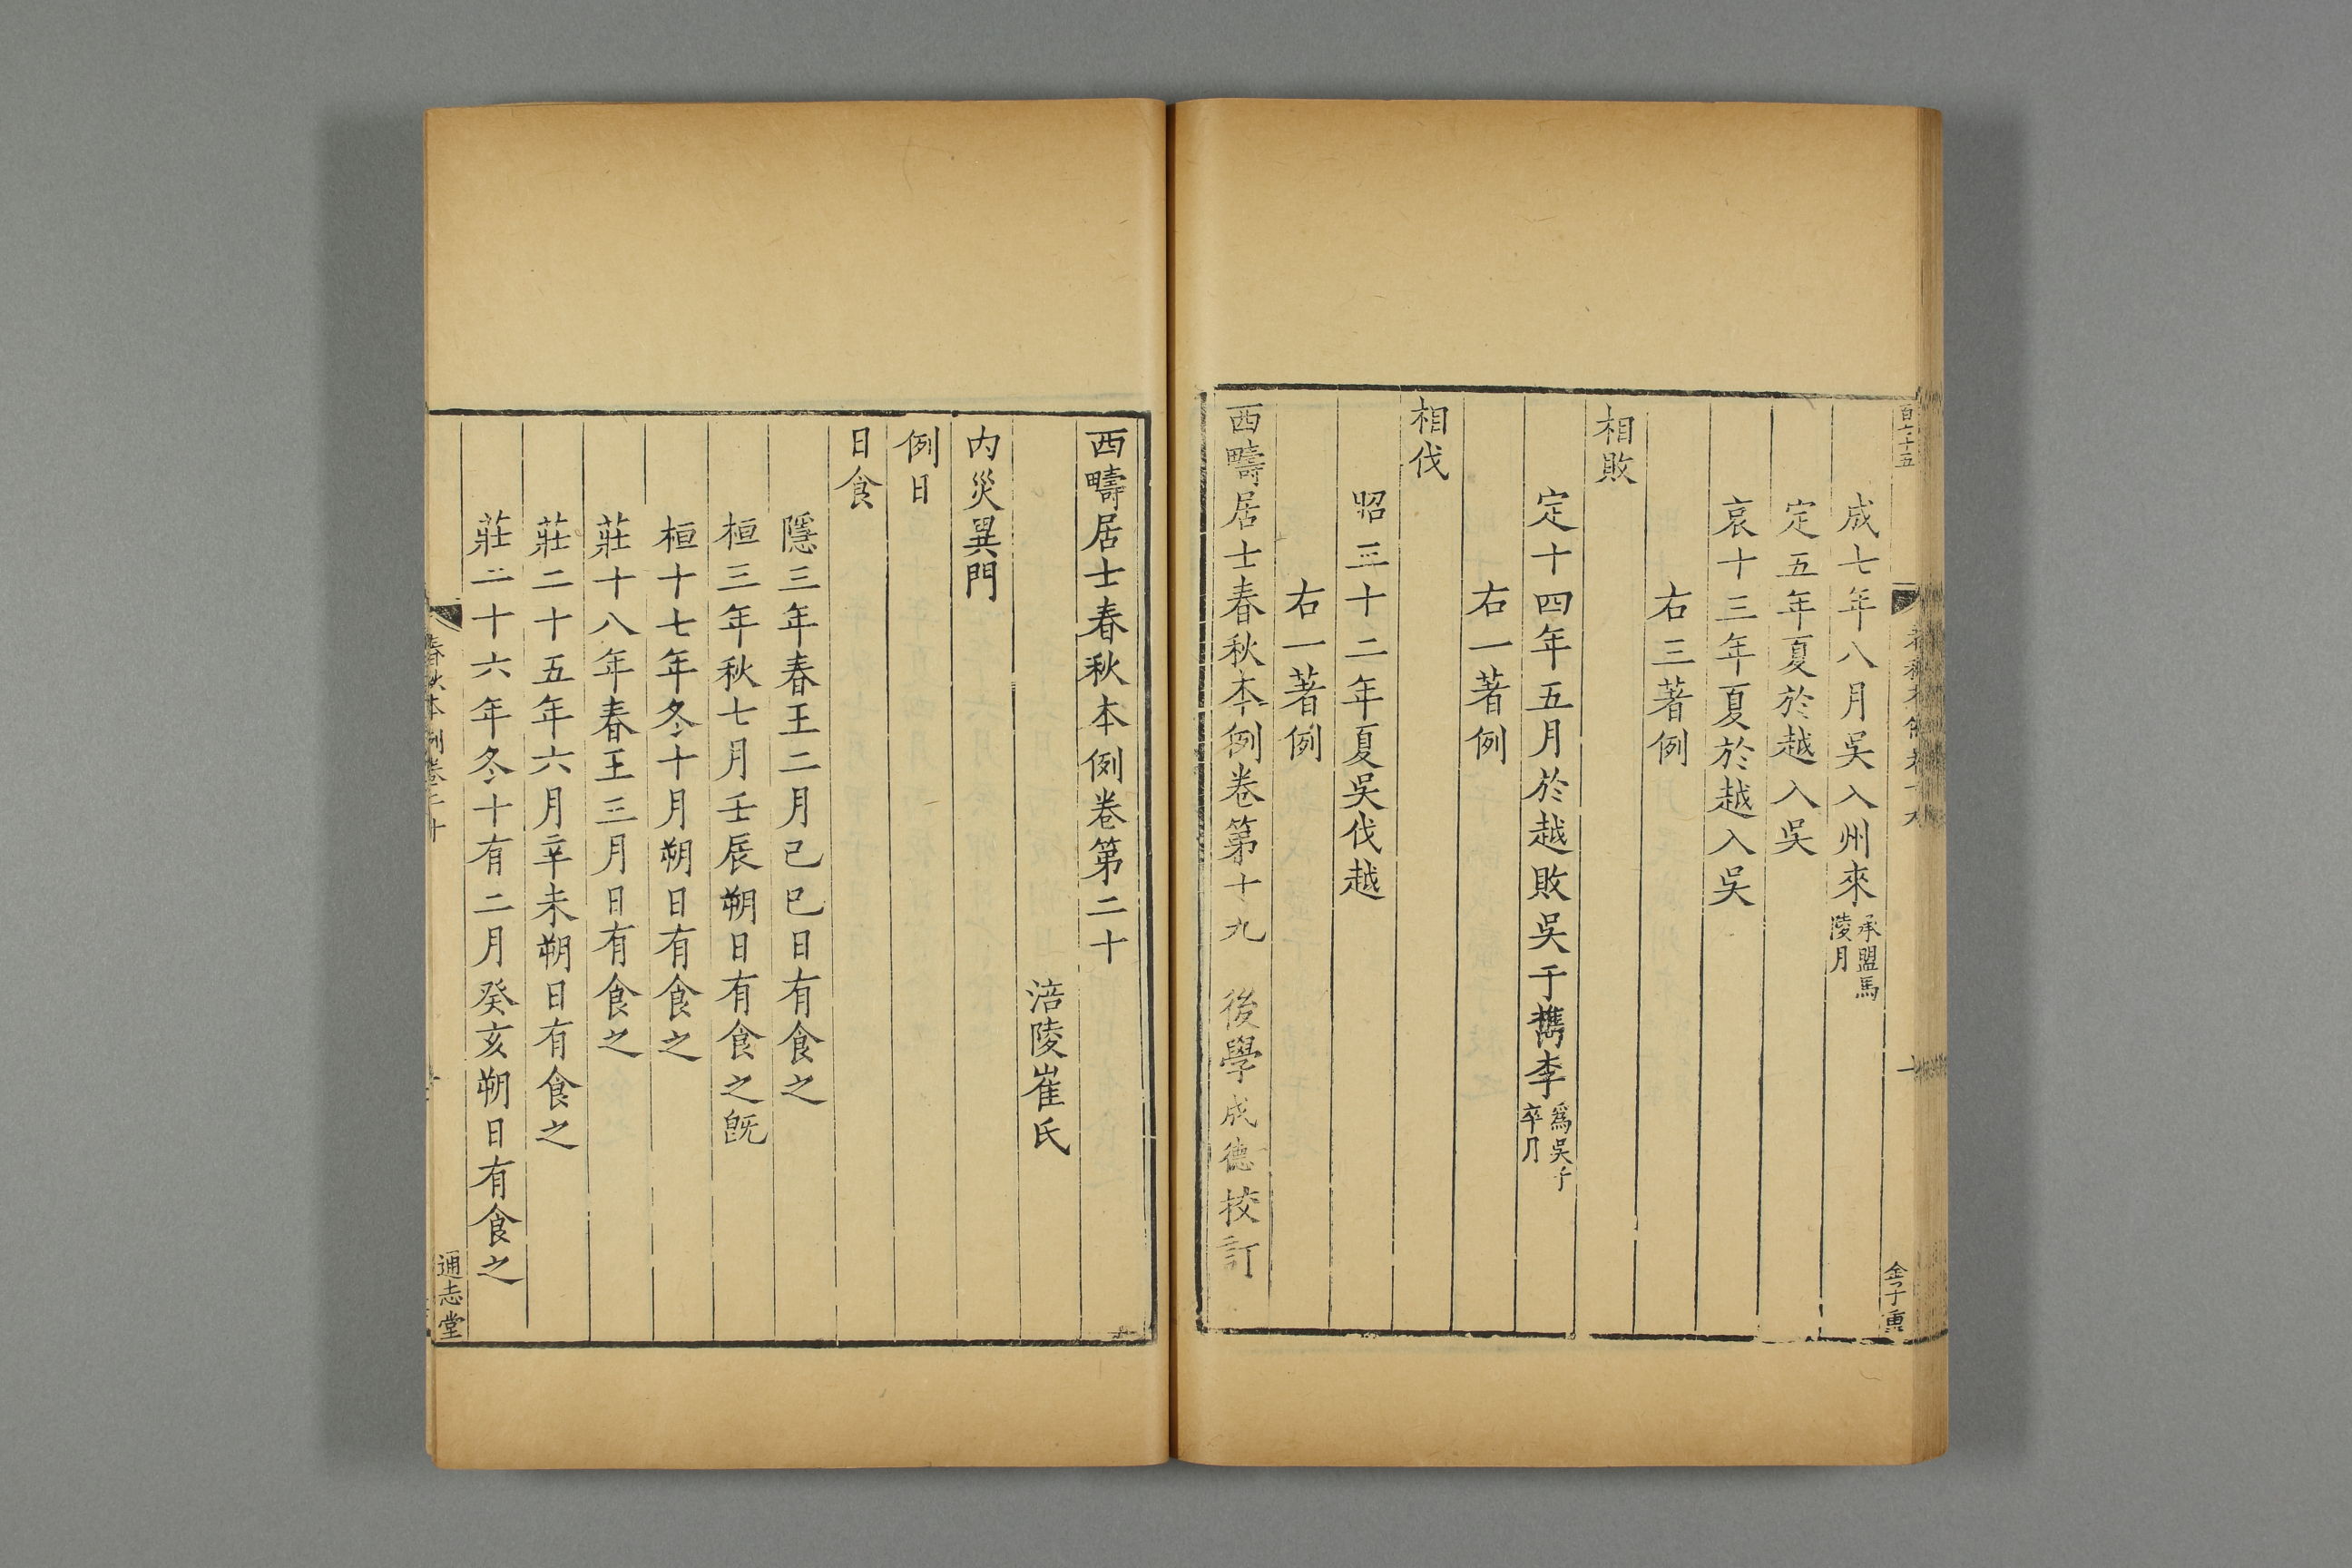 成七年八月吳入州來承盟馬陵月
定五年夏於越入吳
哀十三年夏於越入吳
右三著例
相敗
定十四年五月於越敗吳于檇李爲吳子卒月
右一著例
相伐
昭三十二年夏吳伐越
右一著例
西疇居士春秋本例卷第十九 後學成德校訂
西疇居士春秋本例卷第二十
涪陵崔氏
內災異門
例日
日食
隱三年春王二月己巳日有食之
桓三年秋七月壬辰朔日有食之旣
桓十七年冬十月朔日有食之
莊十八年春王三月日有食之
莊二十五年六月辛未朔日有食之
莊二十六年冬十有二月癸亥朔日有食之
春秋本例卷二十
通志堂